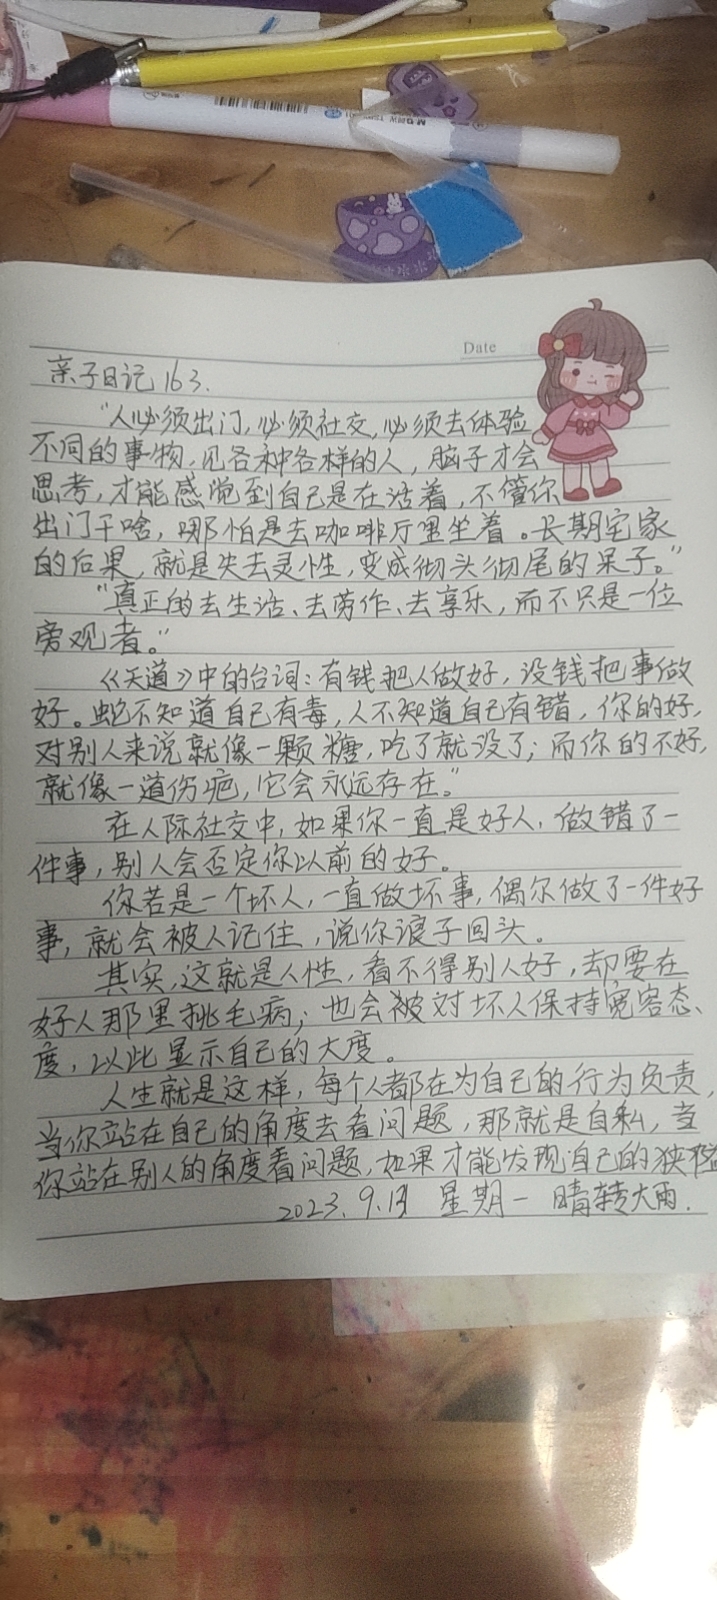 Date
亲子日记163.
"人必须出门,必须社交,必须去体验
不同的事物,见各种各样的人,脑子才会
思考,才能感觉到自己是在活着,不管你
出门干啥,哪怕是去咖啡厅里坐着。长期宅家
的后果,就是失去灵性,变成彻头彻尾的呆子。"
"真正的去生活、去劳作、去享乐,而不只是一位
旁观者。"
《天道》中的台词:有钱把人做好,没钱把事做
好。蛇不知道自己有毒,人不知道自己有错,你的好,
对别人来说就像一颗糖,吃了就没了;而你的不好,
就像一道伤疤,它会永远存在。"
在人际社交中,如果你一直是好人,做错了一
件事,别人会否定你以前的好。
你若是一个坏人,一直做坏事,偶尔做了一件好
事,就会被人记住,说你浪子回头。
其实,这就是人性,看不得别人好,却要在
好人那里挑毛病;也会被对坏人保持宽容态
度,以此显示自己的大度。
人生就是这样,每个人都在为自己的行为负责,
当你站在自己的角度去看问题,那就是自私,当
你站在别人的角度看问题,如果才能发现自己的狭隘
2023.9. 星期一 晴转大雨.